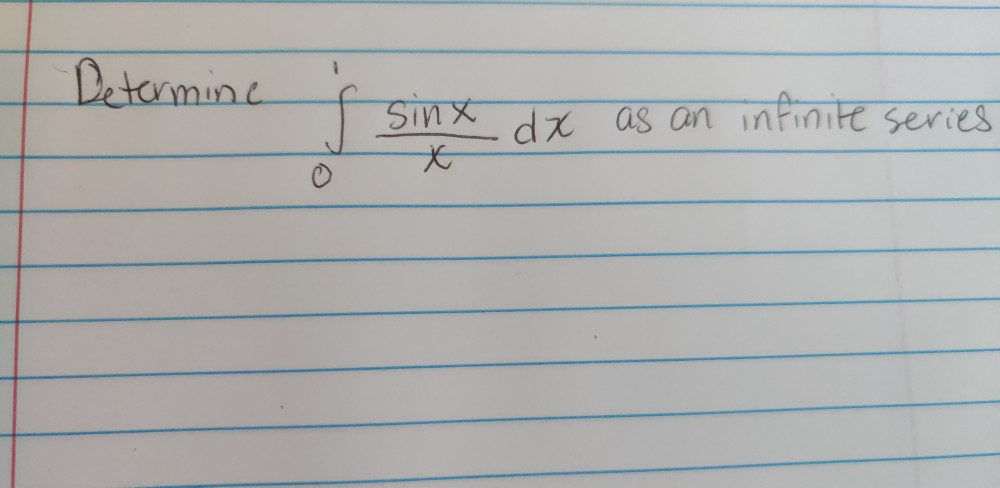 Determine ∫₀¹ sinx/x dx as an infinite series